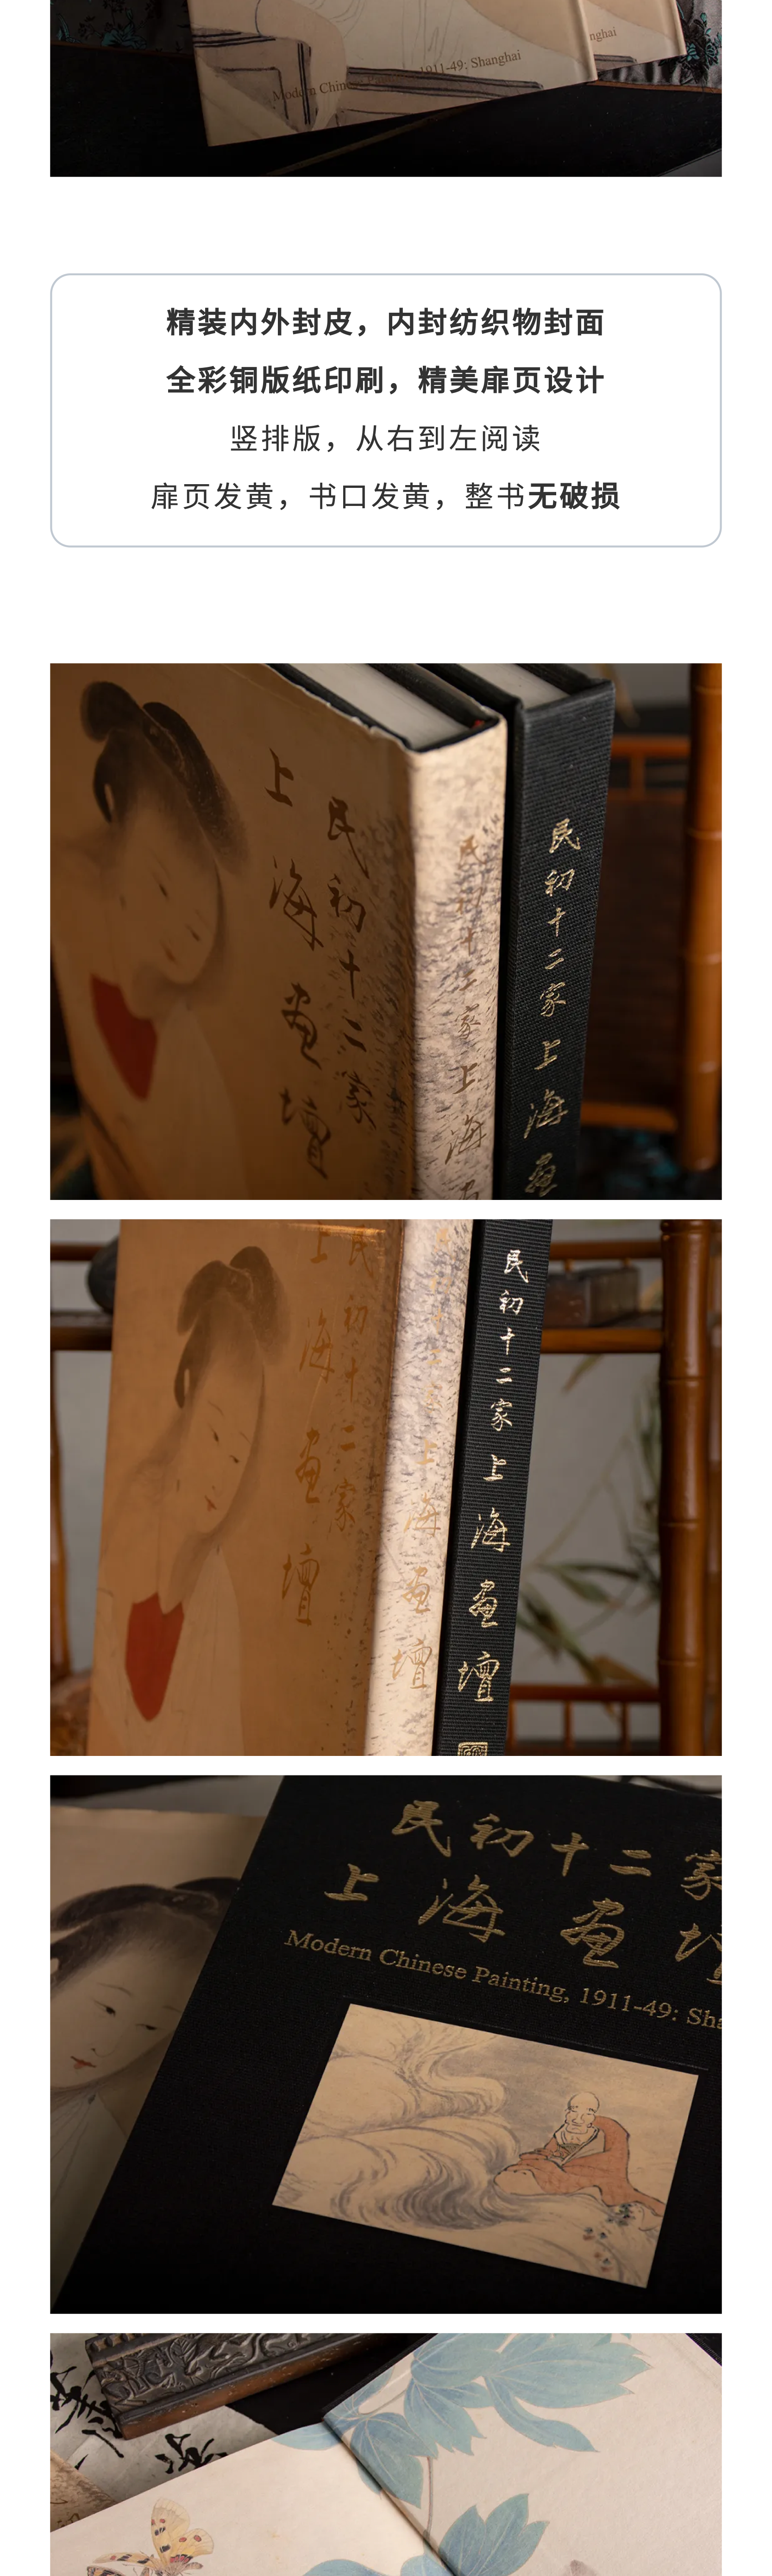 Modern Chinese Painting, 1911-49: Shanghai
nghai
精装内外封皮，内封纺织物封面
全彩铜版纸印刷，精美扉页设计
竖排版，从右到左阅读
扉页发黄，书口发黄，整书无破损
民初十二家
上海画壇
民初十二家 上海画
民初十二家 上海画
民初十二家
上海画壇
上海画壇
民初十二家 上海画壇
民初十二家
上海画壇
Modern Chinese Painting, 1911-49: Sha